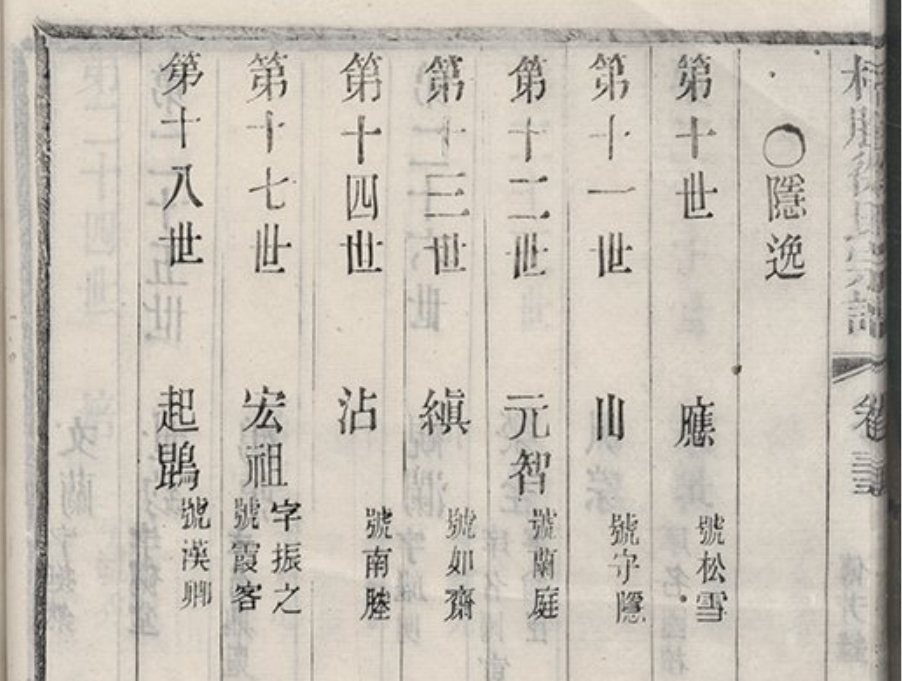 ○隱逸
第十世 應 號松雪
第十一世 山 號守隱
第十二世 元智 號蘭庭
第十三世 縝 號如齋
第十四世 沾 號南塍
第十七世 宏祖 字振之 號霞客
第十八世 起鵾 號漢卿